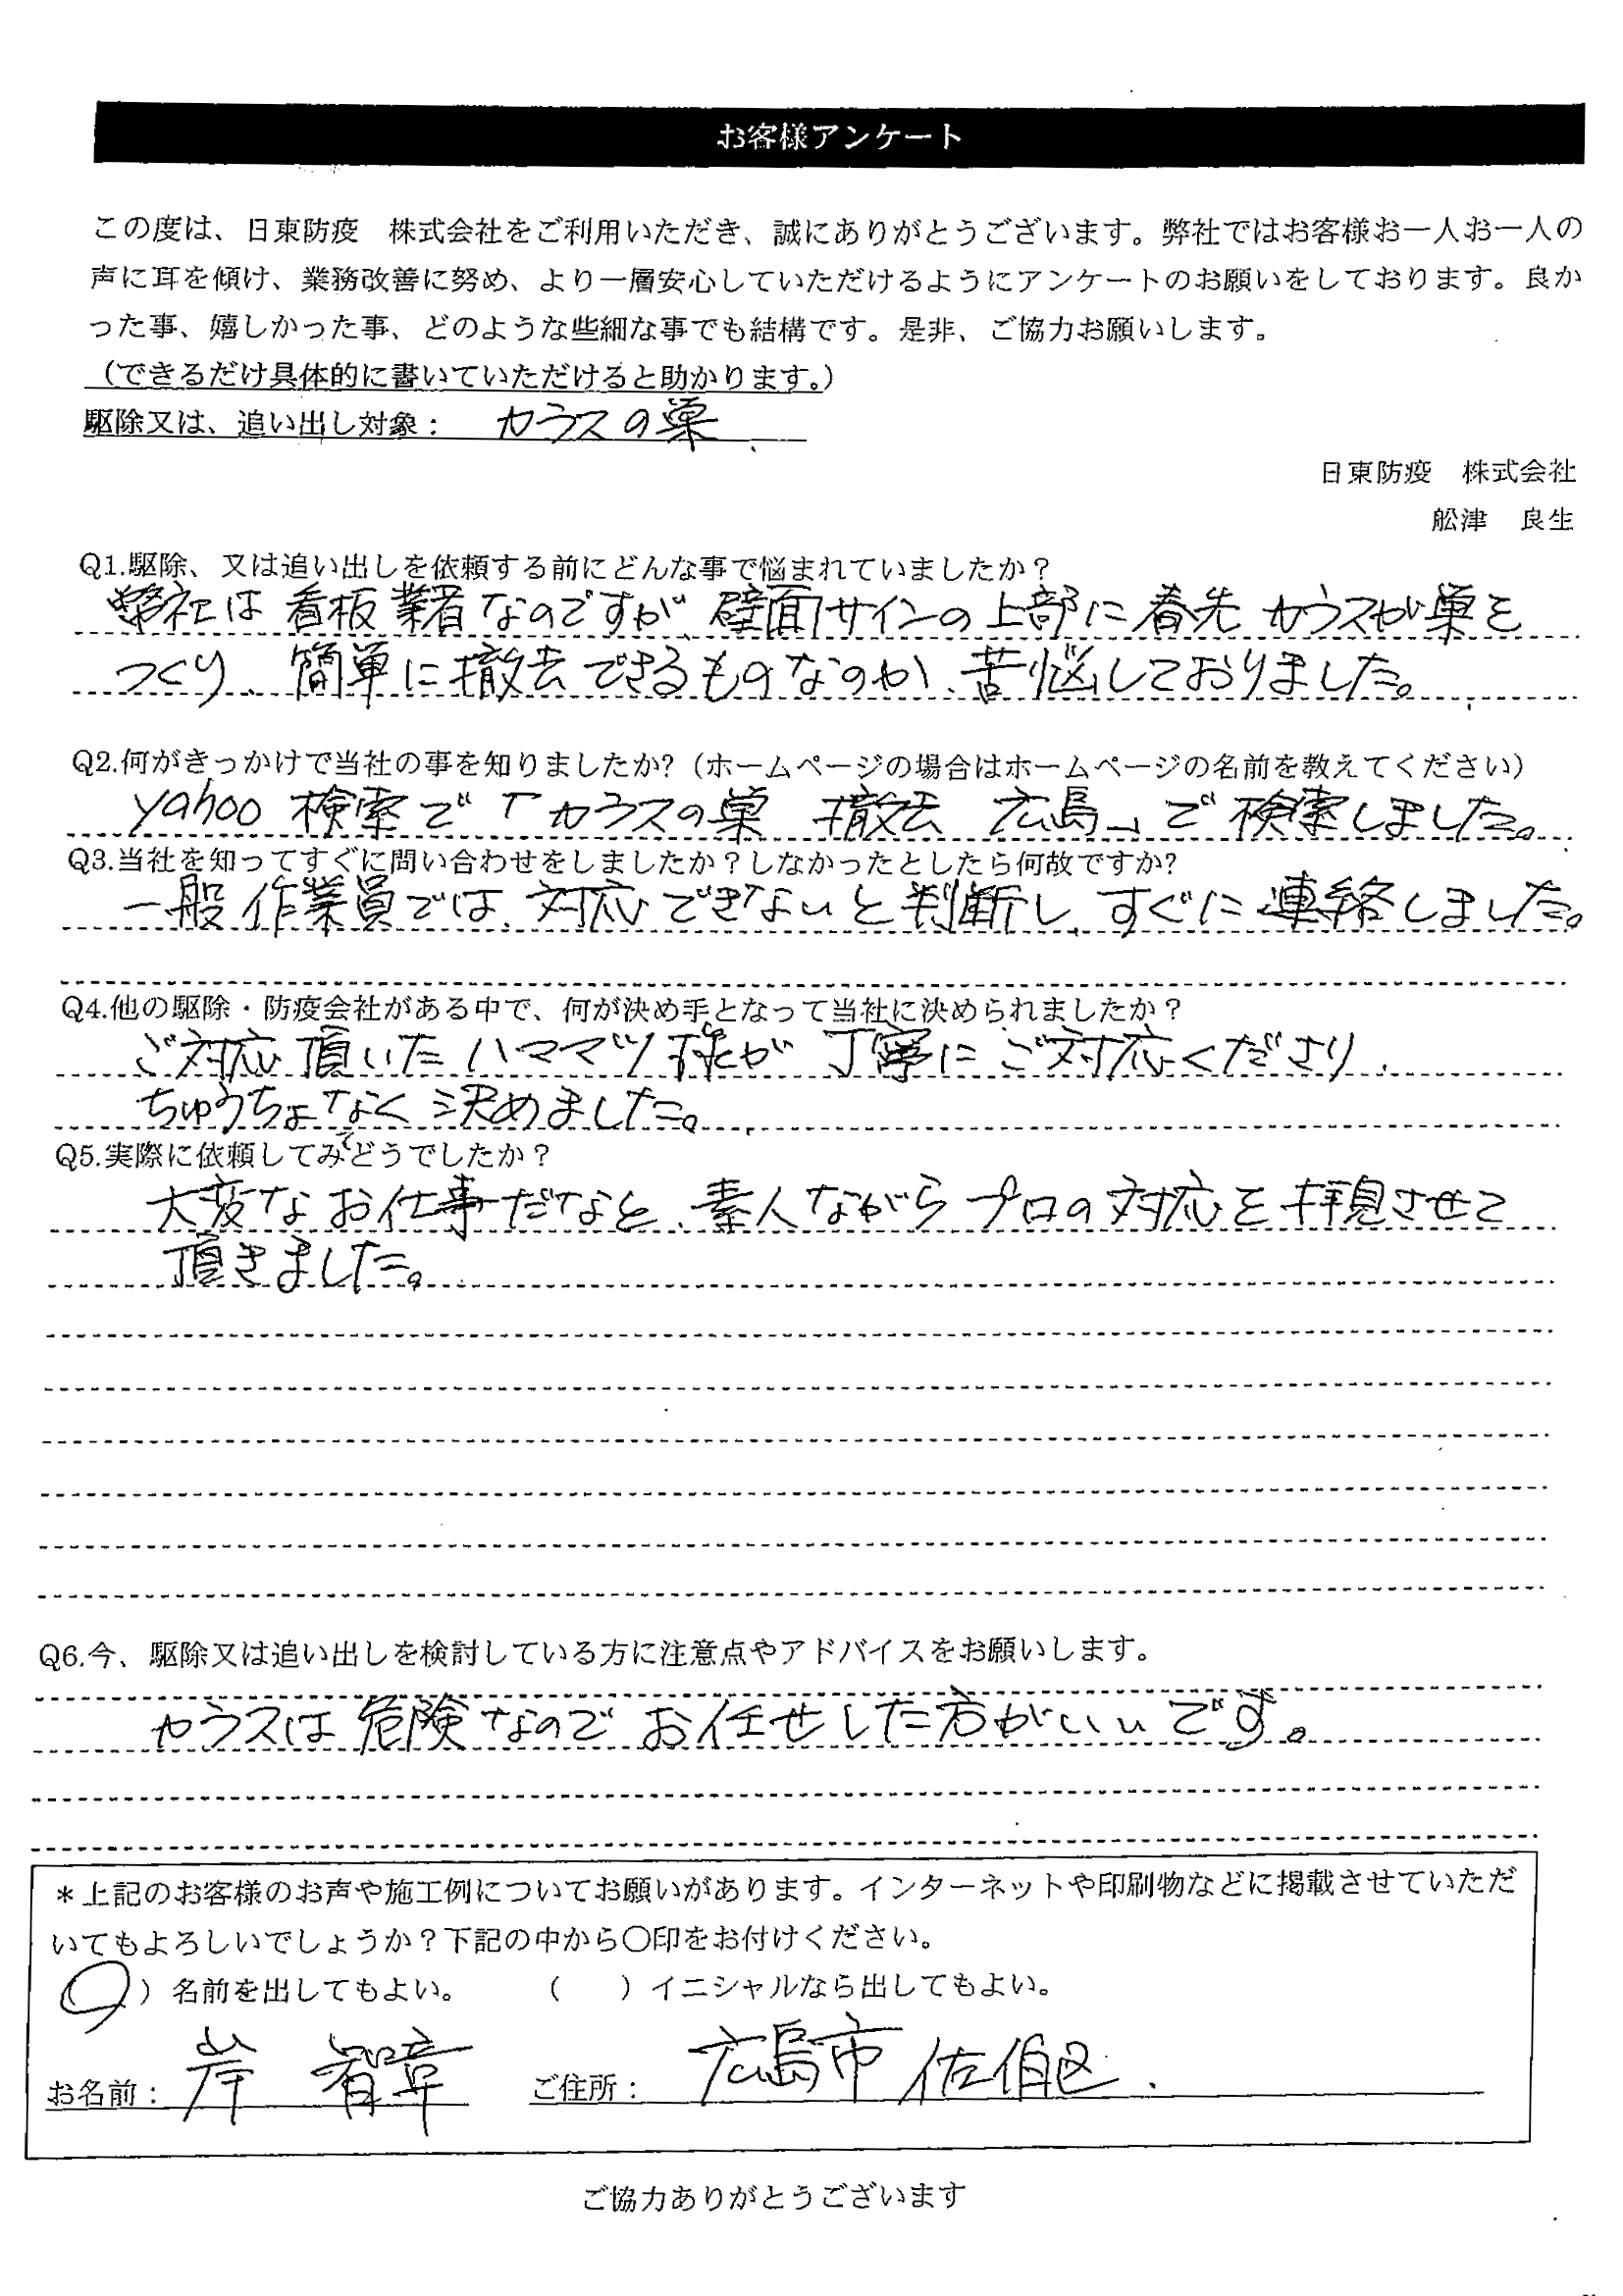 お客様アンケート
この度は、日東防疫　株式会社をご利用いただき、誠にありがとうございます。弊社ではお客様お一人お一人の
声に耳を傾け、業務改善に努め、より一層安心していただけるようにアンケートのお願いをしております。良か
った事、嬉しかった事、どのような些細な事でも結構です。是非、ご協力お願いします。
（できるだけ具体的に書いていただけると助かります。）
駆除又は、追い出し対象： カラスの巣
日東防疫　株式会社
舩津　良生
Q1.駆除、又は追い出しを依頼する前にどんな事で悩まれていましたか？
弊社は看板業者なのですが、壁面サインの上部に春先カラスが巣を
つくり、簡単に撤去できるものなのか、苦悩しておりました。
Q2.何がきっかけで当社の事を知りましたか?（ホームページの場合はホームページの名前を教えてください）
yahoo検索で「カラスの巣　撤去　広島」で検索しました。
Q3.当社を知ってすぐに問い合わせをしましたか？しなかったとしたら何故ですか?
一般作業員では、対応できないと判断し、すぐに連絡しました。
Q4.他の駆除・防疫会社がある中で、何が決め手となって当社に決められましたか？
ご対応頂いたハママツ様が丁寧にご対応くださり、
ちゅうちょなく決めました。
Q5.実際に依頼してみてどうでしたか？
大変なお仕事だなと、素人ながらプロの対応を拝見させて
頂きました。
Q6.今、駆除又は追い出しを検討している方に注意点やアドバイスをお願いします。
カラスは危険なのでお任せした方がいいです。
＊上記のお客様のお声や施工例についてお願いがあります。インターネットや印刷物などに掲載させていただ
いてもよろしいでしょうか？下記の中から〇印をお付けください。
（○）名前を出してもよい。　（　）イニシャルなら出してもよい。
お名前：岸　智章　ご住所：広島市佐伯区.
ご協力ありがとうございます